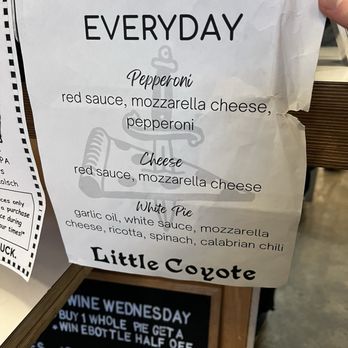 EVERYDAY
Pepperoni
red sauce, mozzarella cheese,
pepperoni
Cheese
red sauce, mozzarella cheese
White Pie
garlic oil, white sauce, mozzarella
cheese, ricotta, spinach, calabrian chili
Little Coyote
WINE WEDNESDAY
BUY 1 WHOLE PIE GET A
WIN EBOTTLE HALF OFF
only
a
purchase
during